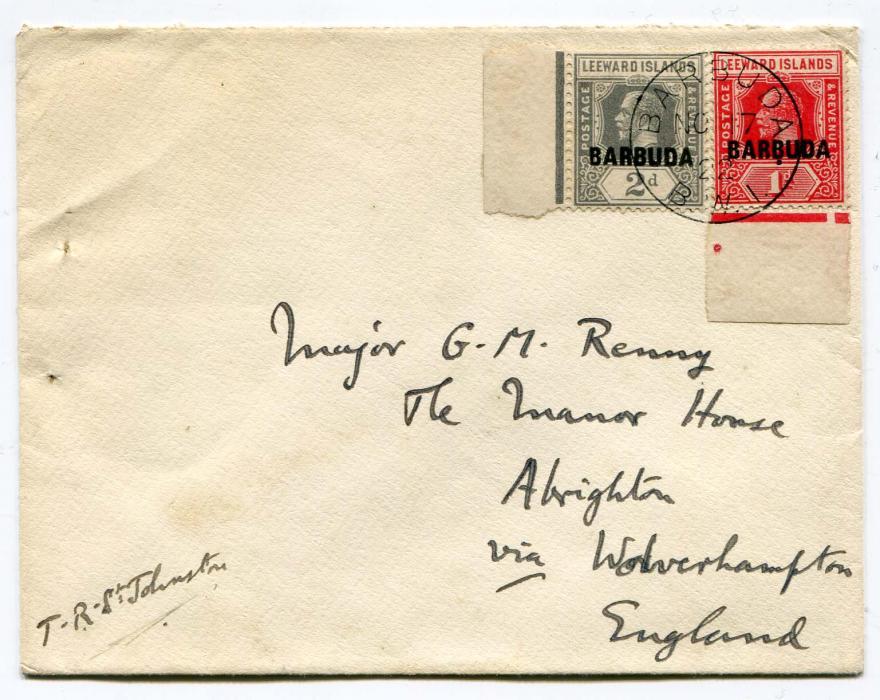 LEEWARD ISLANDS
POSTAGE & REVENUE
BARBUDA
2d
LEEWARD ISLANDS
POSTAGE & REVENUE
BARBUDA
1d
BARBUDA
NO 7
22
B.W.I.
Major G. M. Renny
The Manor House
Albrighton
via Wolverhampton
England
T. R. St Johnston